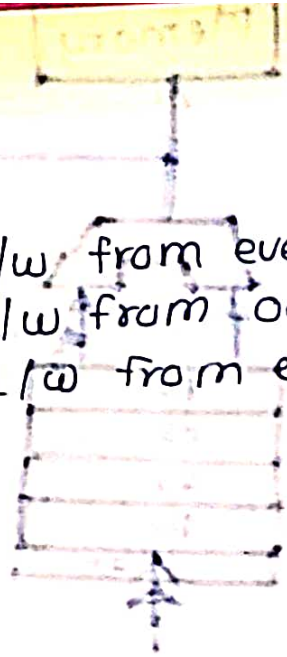 /w from eve
/w from o
/w from e